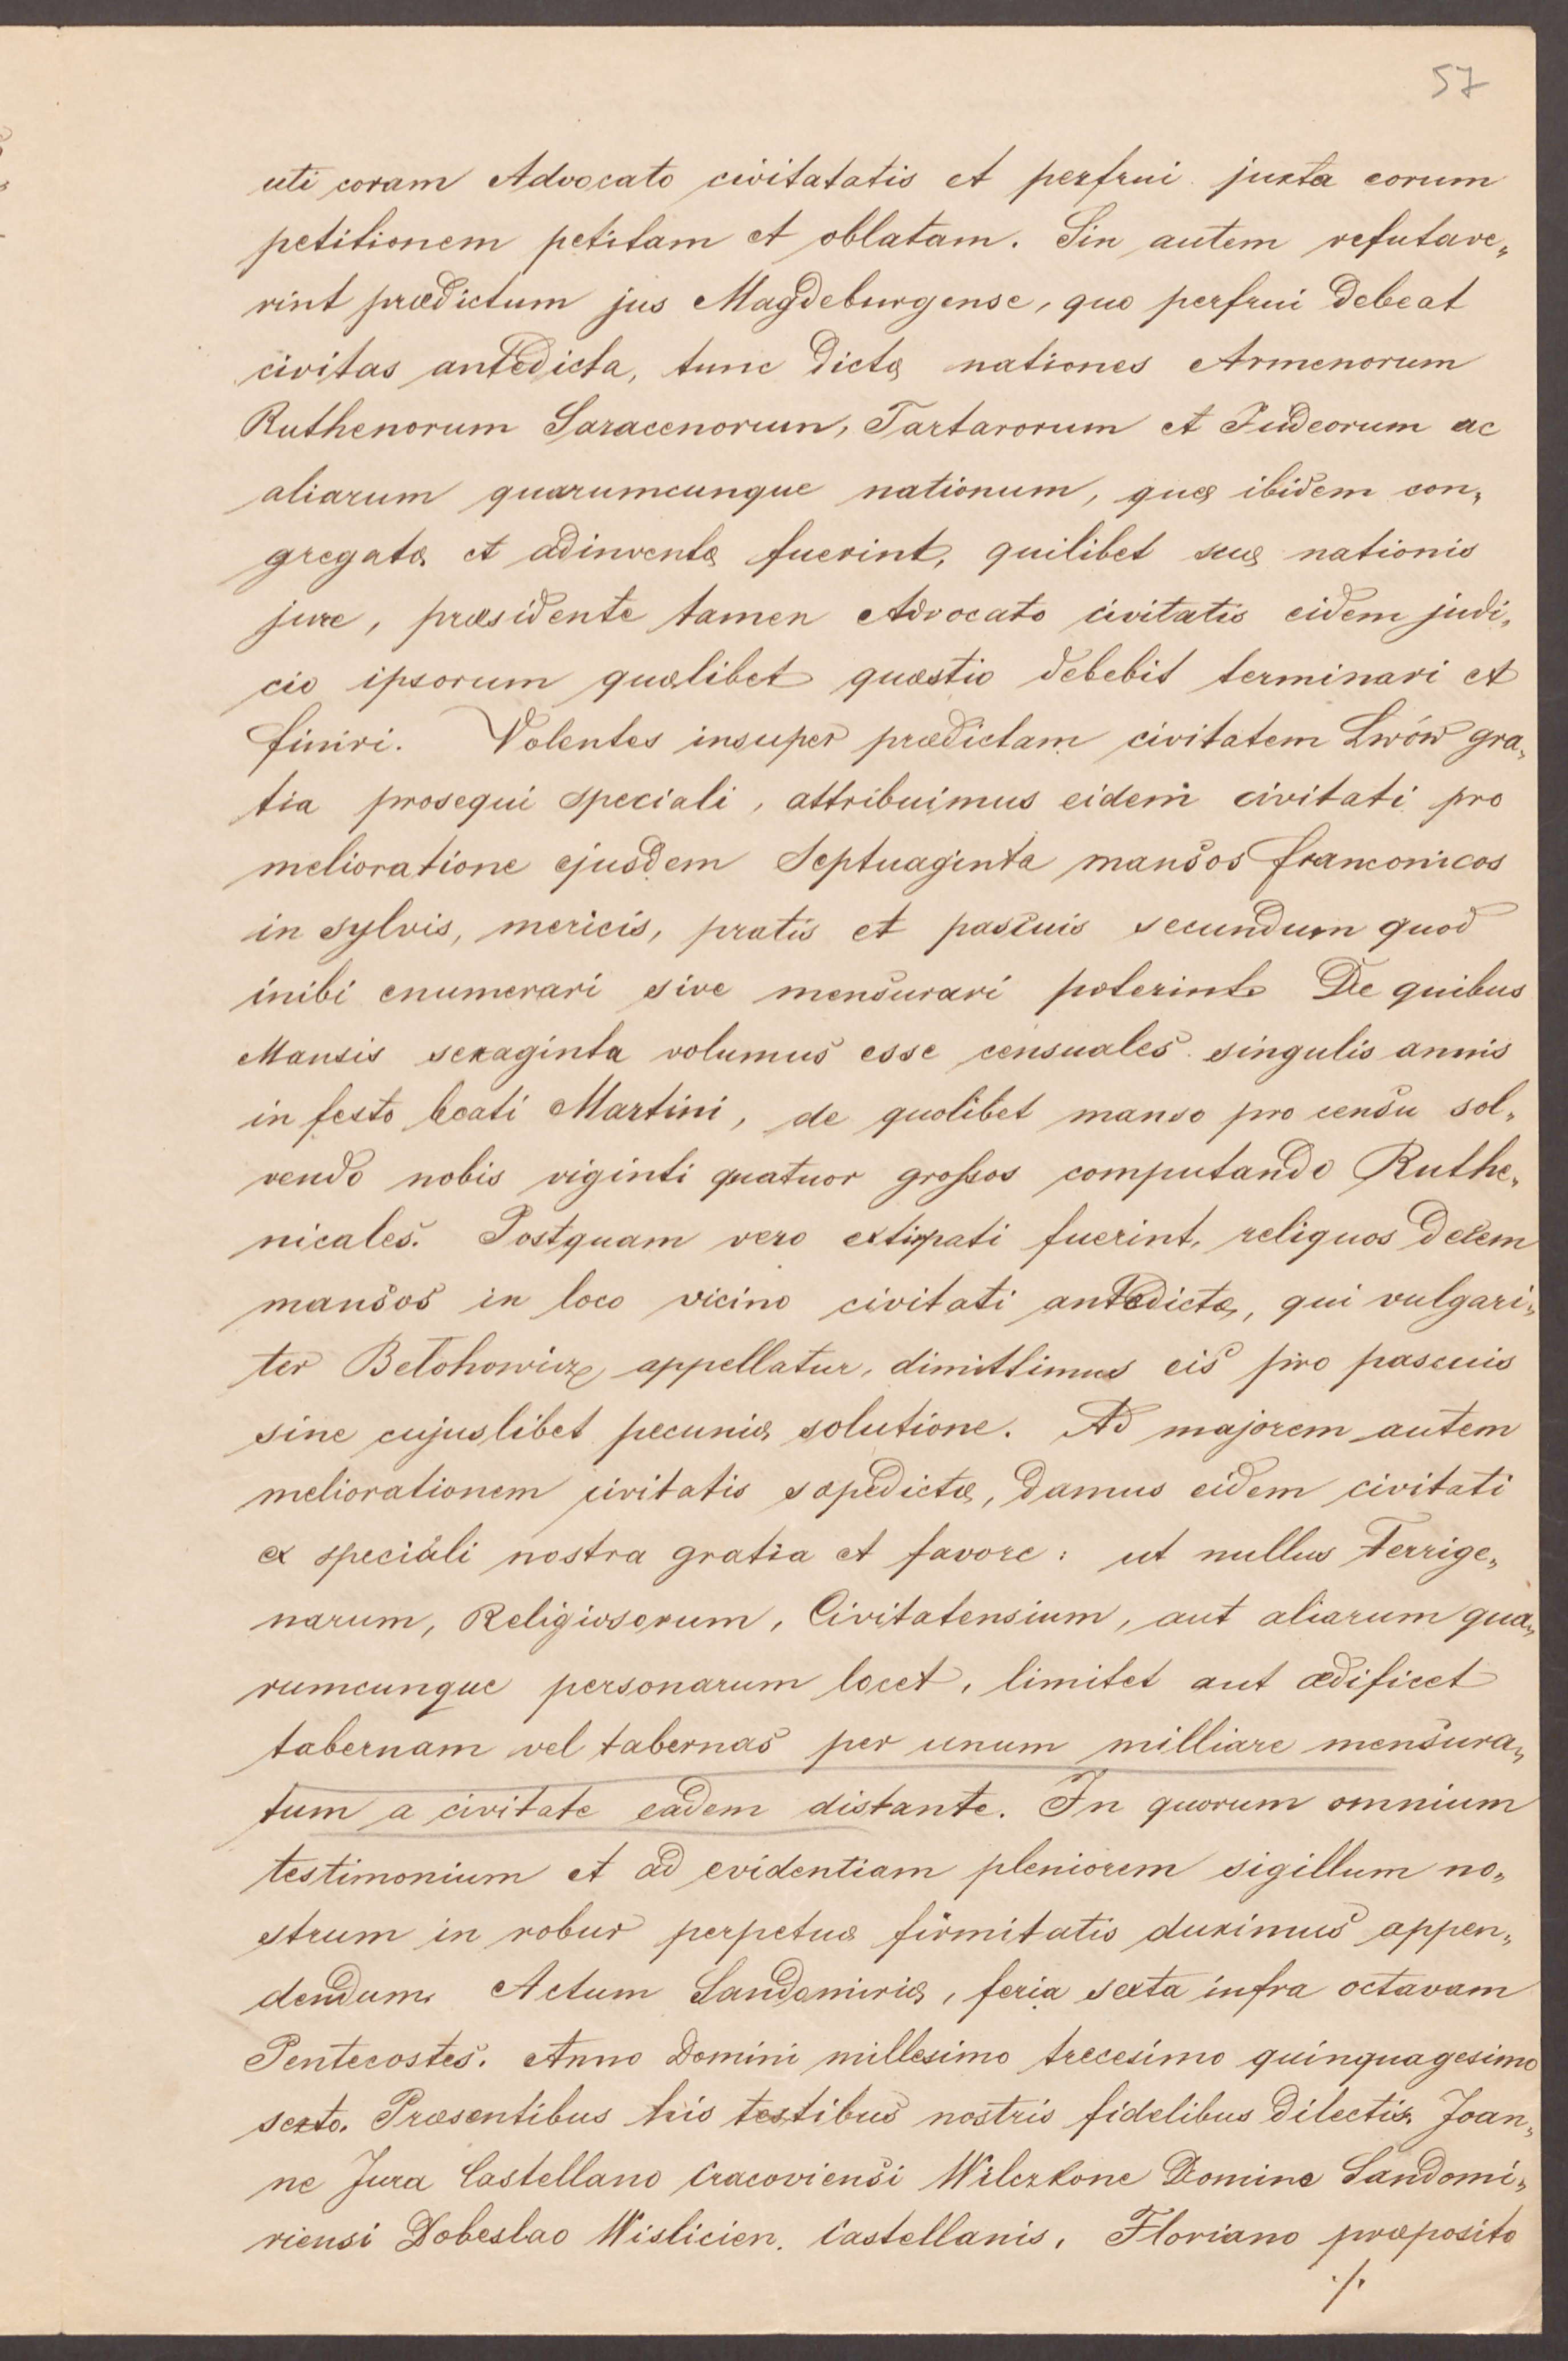 57
uti coram Advocato civitatatis et perfrui juxta eorum
petitionem petitam et oblatam. Sin autem refutave„
rint prædictum jus Magdeburgense, quo perfrui debeat
civitas antedicta, tunc dictæ nationes Armenorum
Ruthenorum Saracenorum, Tartarorum et Judeorum ac
aliarum quarumcunque nationum, quæ ibidem con„
gregatæ et adinventæ fuerint, quilibet suæ nationis
jure, præsidente tamen Advocato civitatis eidem judi„
cio ipsorum quælibet quæstio debebit terminari et
finiri. Volentes insuper prædictam civitatem Lwów gra„
tia prosequi speciali, attribuimus eidem civitati pro
melioratione ejusdem Septuaginta mansos franconicos
in sylvis, mericis, pratis et pascuis secundum quod
inibi enumerari sive mensurari poterint. De quibus
Mansis sexaginta volumus esse censuales singulis annis
in festo beati Martini, de quolibet manso pro censu sol„
vendo nobis viginti quatuor grossos computando Ruthe„
nicales. Postquam vero extirpati fuerint, reliquos decem
mansos in loco vicino civitati antedictæ, qui vulgari„
ter Belohowicz appellatur, dimittimus eis pro pascuis
sine cujuslibet pecuniæ solutione. Ad majorem autem
meliorationem civitatis sæpedictæ, damus eidem civitati
ex speciali nostra gratia et favore: ut nullus Terrige„
narum, Religiosorum, Civitatensium, aut aliarum qua„
rumcunque personarum locet, limitet aut ædificet
tabernam vel tabernas per unum milliare mensura„
tum a civitate eadem distante. In quorum omnium
testimonium et ad evidentiam pleniorem sigillum no„
strum in robur perpetuæ firmitatis duximus appen„
dendum. Actum Sandomiriæ, feria sexta infra octavam
Pentecostes. Anno Domini millesimo trecesimo quinquagesimo
sexto. Præsentibus his testibus nostris fidelibus dilectis. Joan„
ne Jura Castellano Cracoviensi Wilczkone Domine Sandomi„
riensi Dobeslao Wislicien. Castellanis, Floriano præposito
./.